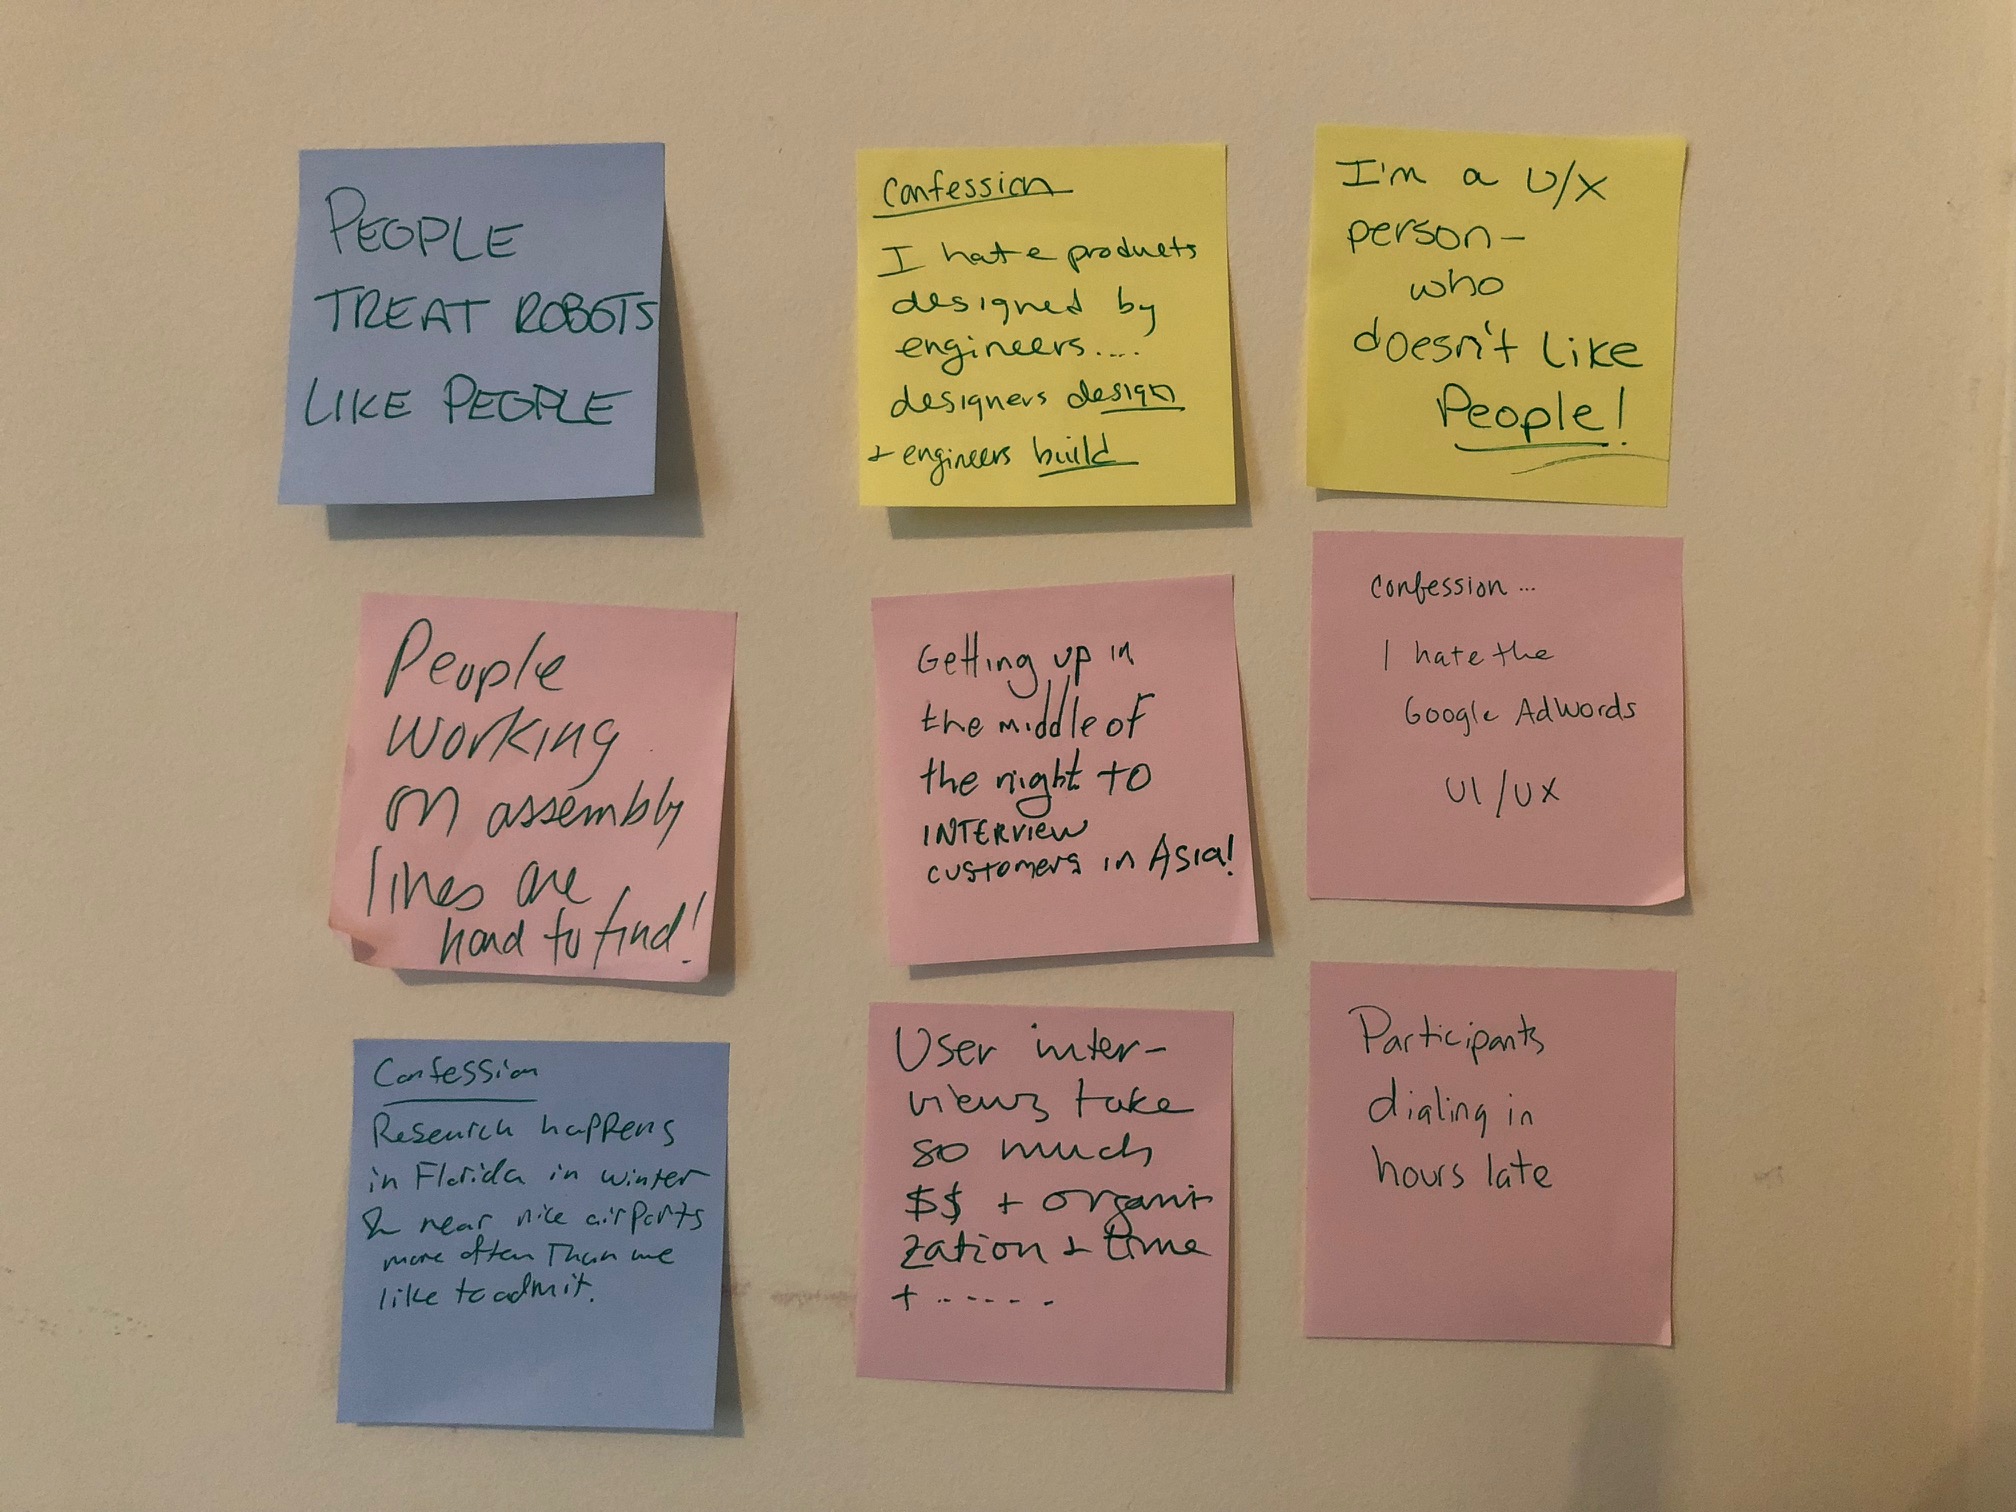 PEOPLE
TREAT ROBOTS
LIKE PEOPLE
Confession
I hate products
designed by
engineers....
designers design
+ engineers build
I'm a U/X
person-
who
doesn't like
People!
People
working
on assembly
lines are
hard to find!
Getting up in
the middle of
the night to
INTERVIEW
customers in Asia!
confession...
I hate the
Google AdWords
UI/UX
Confession
Research happens
in Florida in winter
& near nice airports
more often Than we
like to admit.
User inter-
views take
so much
$$ + organi
zation + time
+ .....
Participants
dialing in
hours late